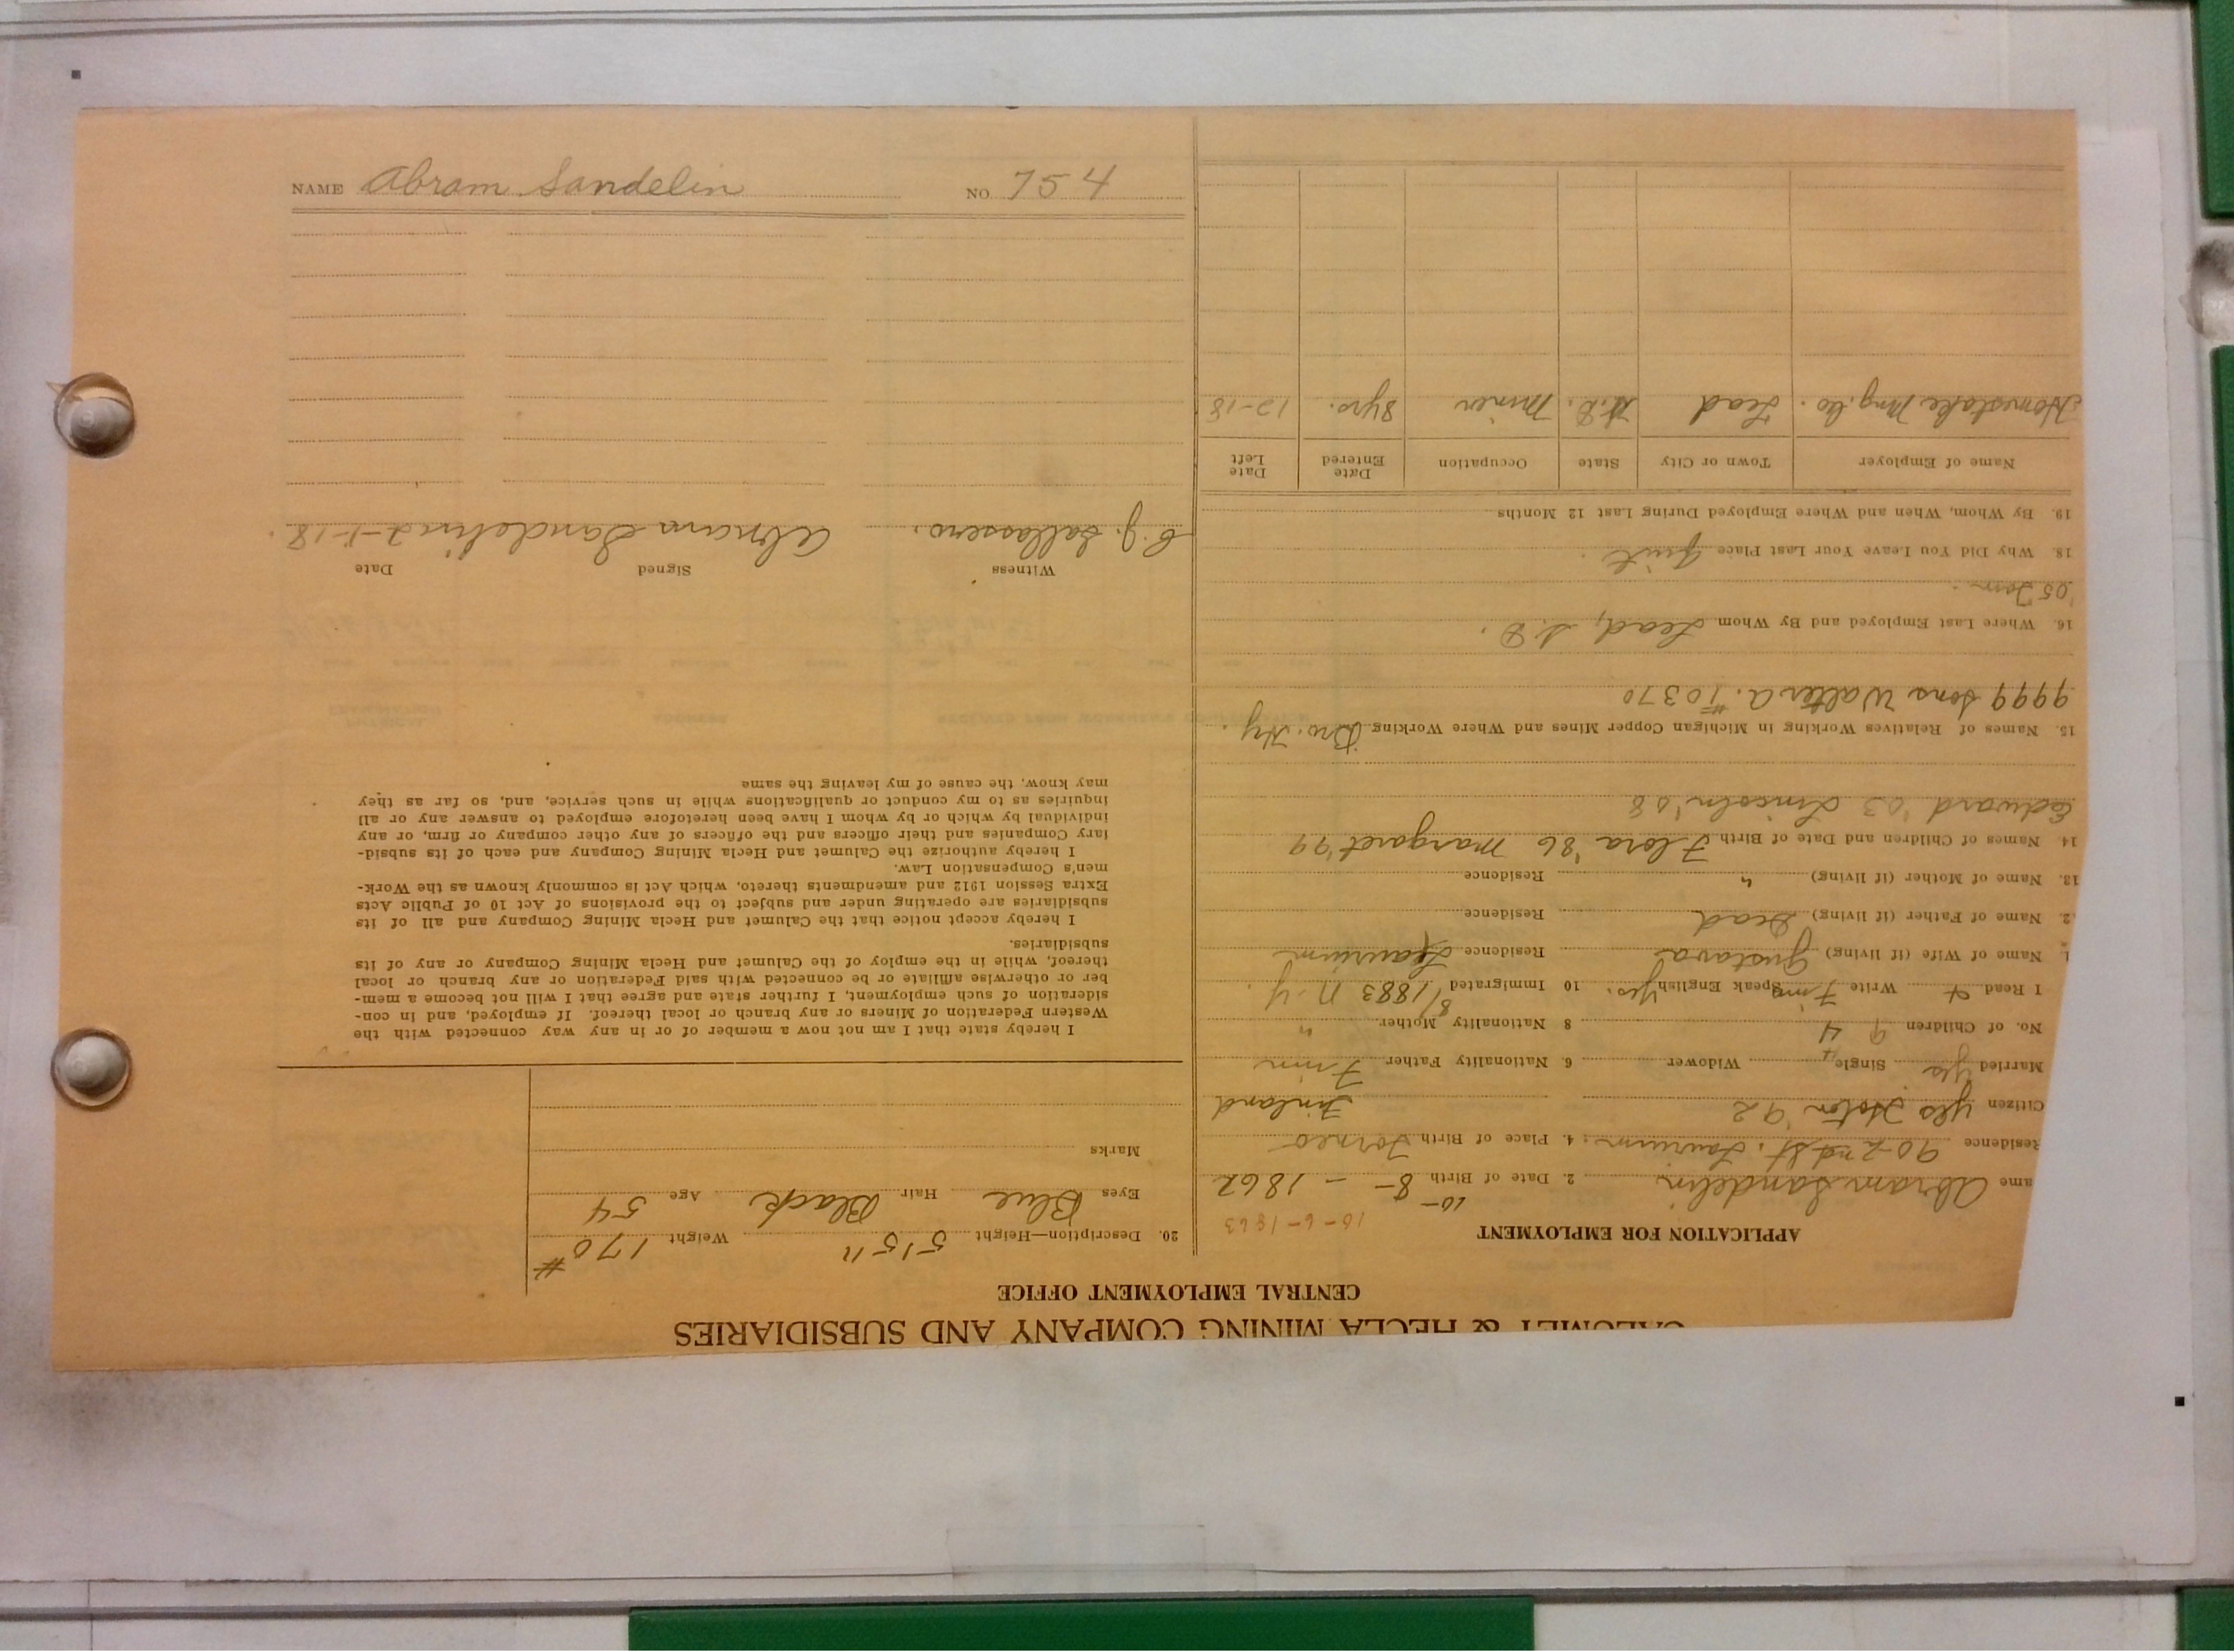 NAME Abram Sandelin NO. 754
CALUMET & HECLA MINING COMPANY AND SUBSIDIARIES
CENTRAL EMPLOYMENT OFFICE
APPLICATION FOR EMPLOYMENT
10-6-1863
10-
ame Abram Sandelin 2. Date of Birth 8- - 1862
Residence 90-2nd St. Laurium 4. Place of Birth Torneo
Citizen yes Hoton '92 Finland
Married yes Single Widower 6. Nationality Father Finn
4
No. of Children 9 4 8 Nationality Mother "
I Read & Write Finn Speak English Yes. 10 Immigrated 8/1883 N.Y.
1. Name of Wife (if living) Gustava Residence Laurium
2. Name of Father (if living) Dead Residence
13. Name of Mother (if living) " Residence
14. Names of Children and Date of Birth Flora '86 Margaret '99
Edward '03 Lincoln '08
15. Names of Relatives Working in Michigan Copper Mines and Where Working Bro. Hy.
9999 Sons Walter A. #10370
16. Where Last Employed and By Whom Lead, S.D.
'05 Tam.
18. Why Did You Leave Your Last Place Quit.
19. By Whom, When and Where Employed During Last 12 Months
Name of Employer Town or City State Occupation Date Entered Date Left
Homestake Mng. Co. Lead S.D. Miner 8 yrs. 12-18
20. Description—Height 5'5" Weight 170#
Eyes Blue Hair Black Age 54
Marks
I hereby state that I am not now a member of or in any way connected with the
Western Federation of Miners or any branch or local thereof. If employed, and in con-
sideration of such employment, I further state and agree that I will not become a mem-
ber or otherwise affiliate or be connected with said Federation or any branch or local
thereof, while in the employ of the Calumet and Hecla Mining Company or any of its
subsidiaries.
I hereby accept notice that the Calumet and Hecla Mining Company and all of its
subsidiaries are operating under and subject to the provisions of Act 10 of Public Acts
Extra Session 1912 and amendments thereto, which Act is commonly known as the Work-
men's Compensation Law.
I hereby authorize the Calumet and Hecla Mining Company and each of its subsid-
iary Companies and their officers and the officers of any other company or firm, or any
individual by which or by whom I have been heretofore employed to answer any or all
inquiries as to my conduct or qualifications while in such service, and, so far as they
may know, the cause of my leaving the same
Witness Signed Date
Abram Sandelin 2-1-18.